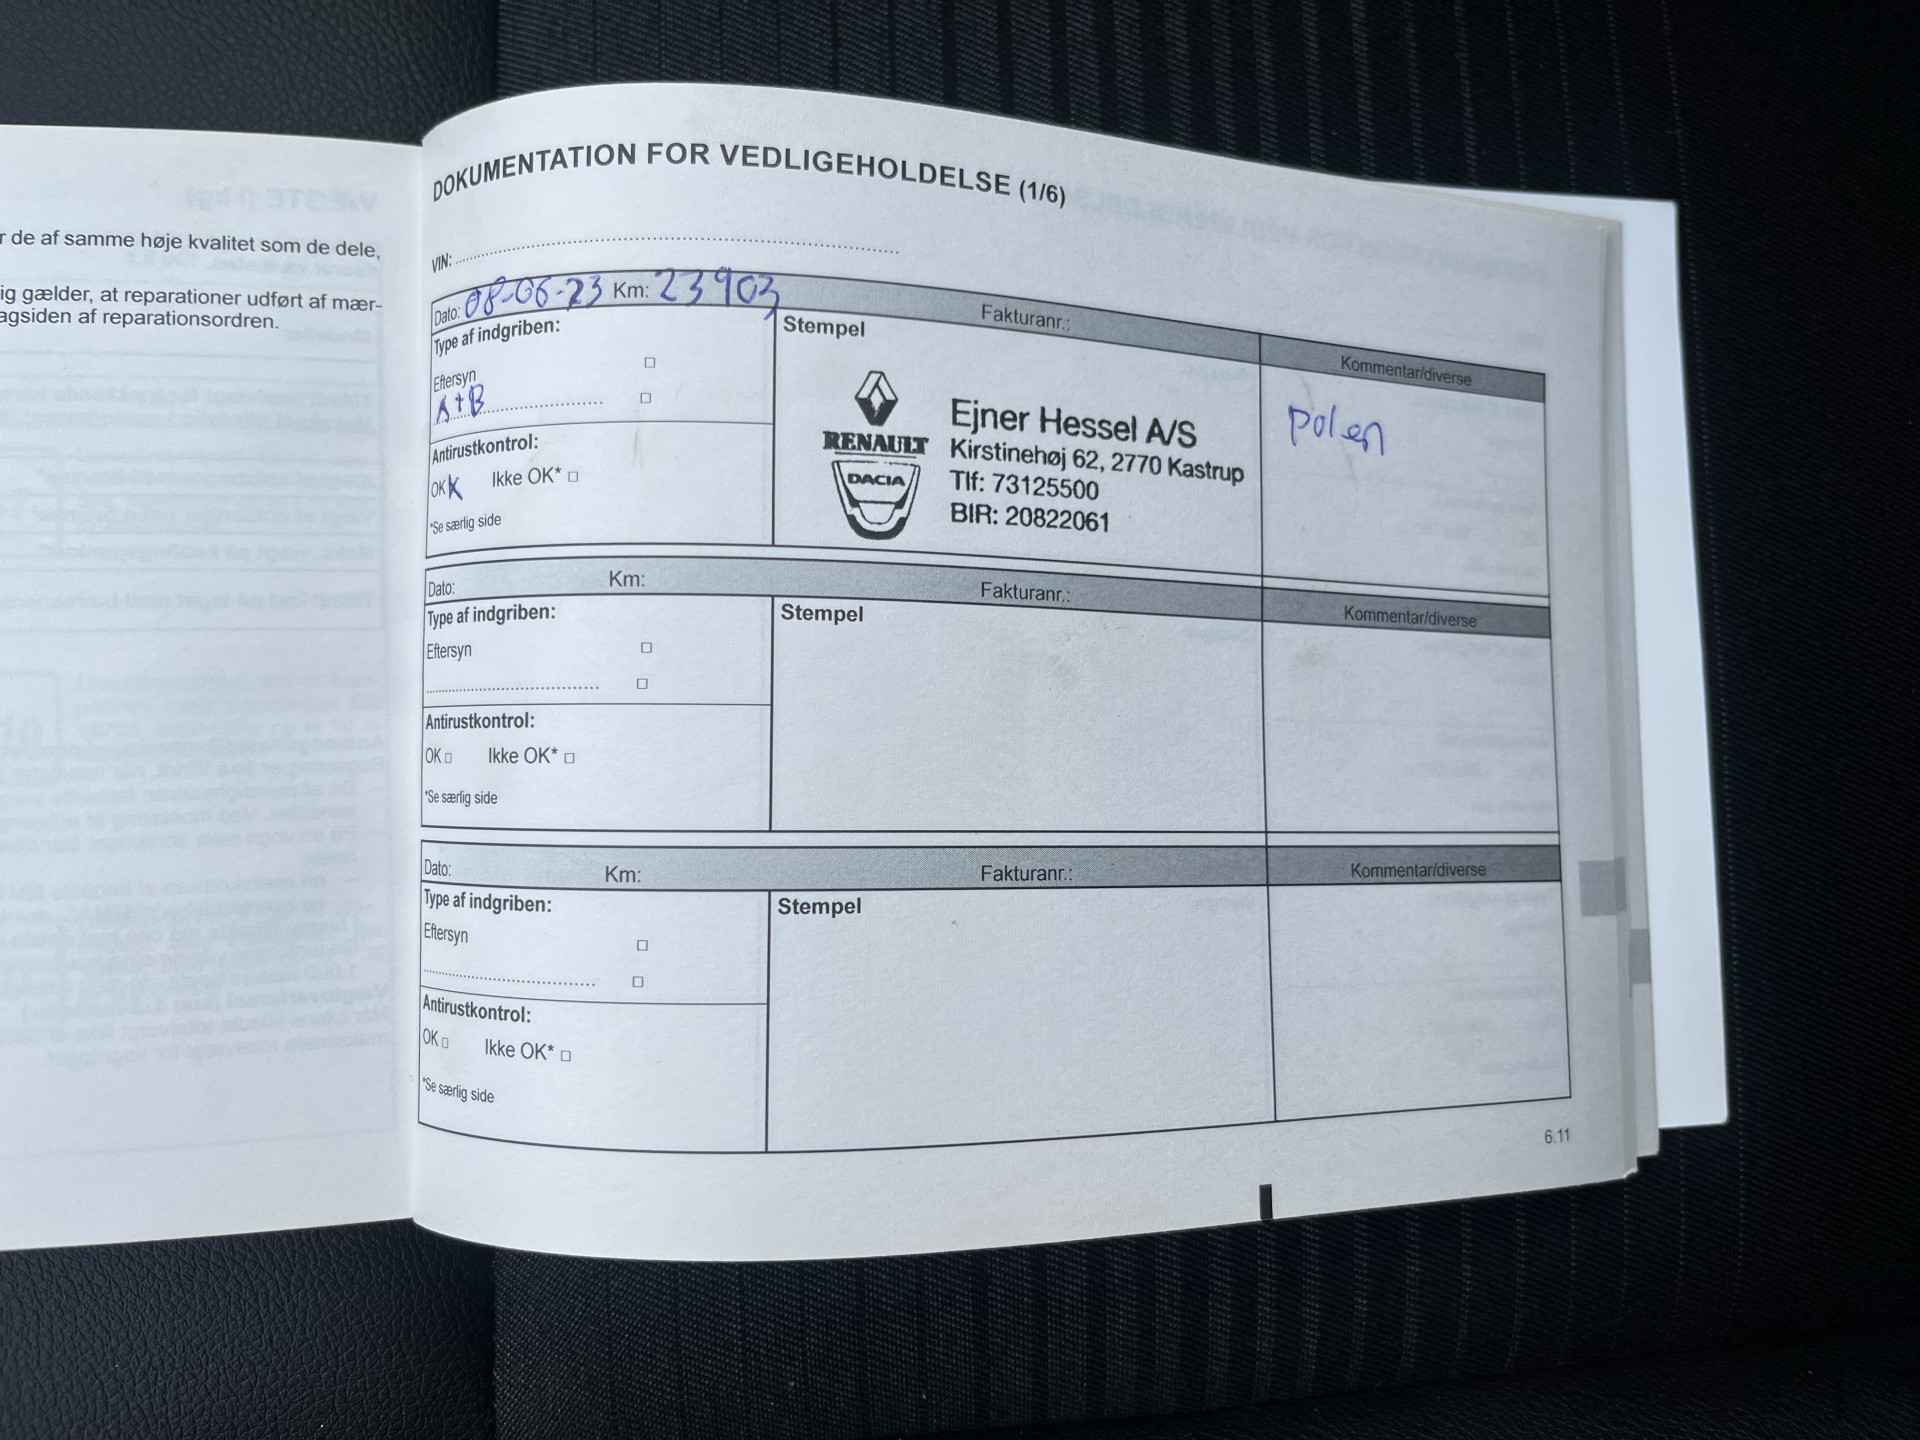 r de af samme høje kvalitet som de dele,
ig gælder, at reparationer udført af mær-
agsiden af reparationsordren.
DOKUMENTATION FOR VEDLIGEHOLDELSE (1/6)
VIN:
Dato: 08-06-23 Km: 23903 Fakturanr.:
Kommentar/diverse
Type af indgriben:
Stempel
Eftersyn
A+B
Antirustkontrol:
OK Ikke OK*
*Se særlig side
RENAULT
DACIA
Ejner Hessel A/S
Kirstinehøj 62, 2770 Kastrup
Tlf: 73125500
BIR: 20822061
polen
Dato: Km: Fakturanr.: Kommentar/diverse
Type af indgriben:
Stempel
Eftersyn
Antirustkontrol:
OK Ikke OK*
*Se særlig side
Dato: Km: Fakturanr.: Kommentar/diverse
Type af indgriben:
Stempel
Eftersyn
Antirustkontrol:
OK Ikke OK*
*Se særlig side
6.11